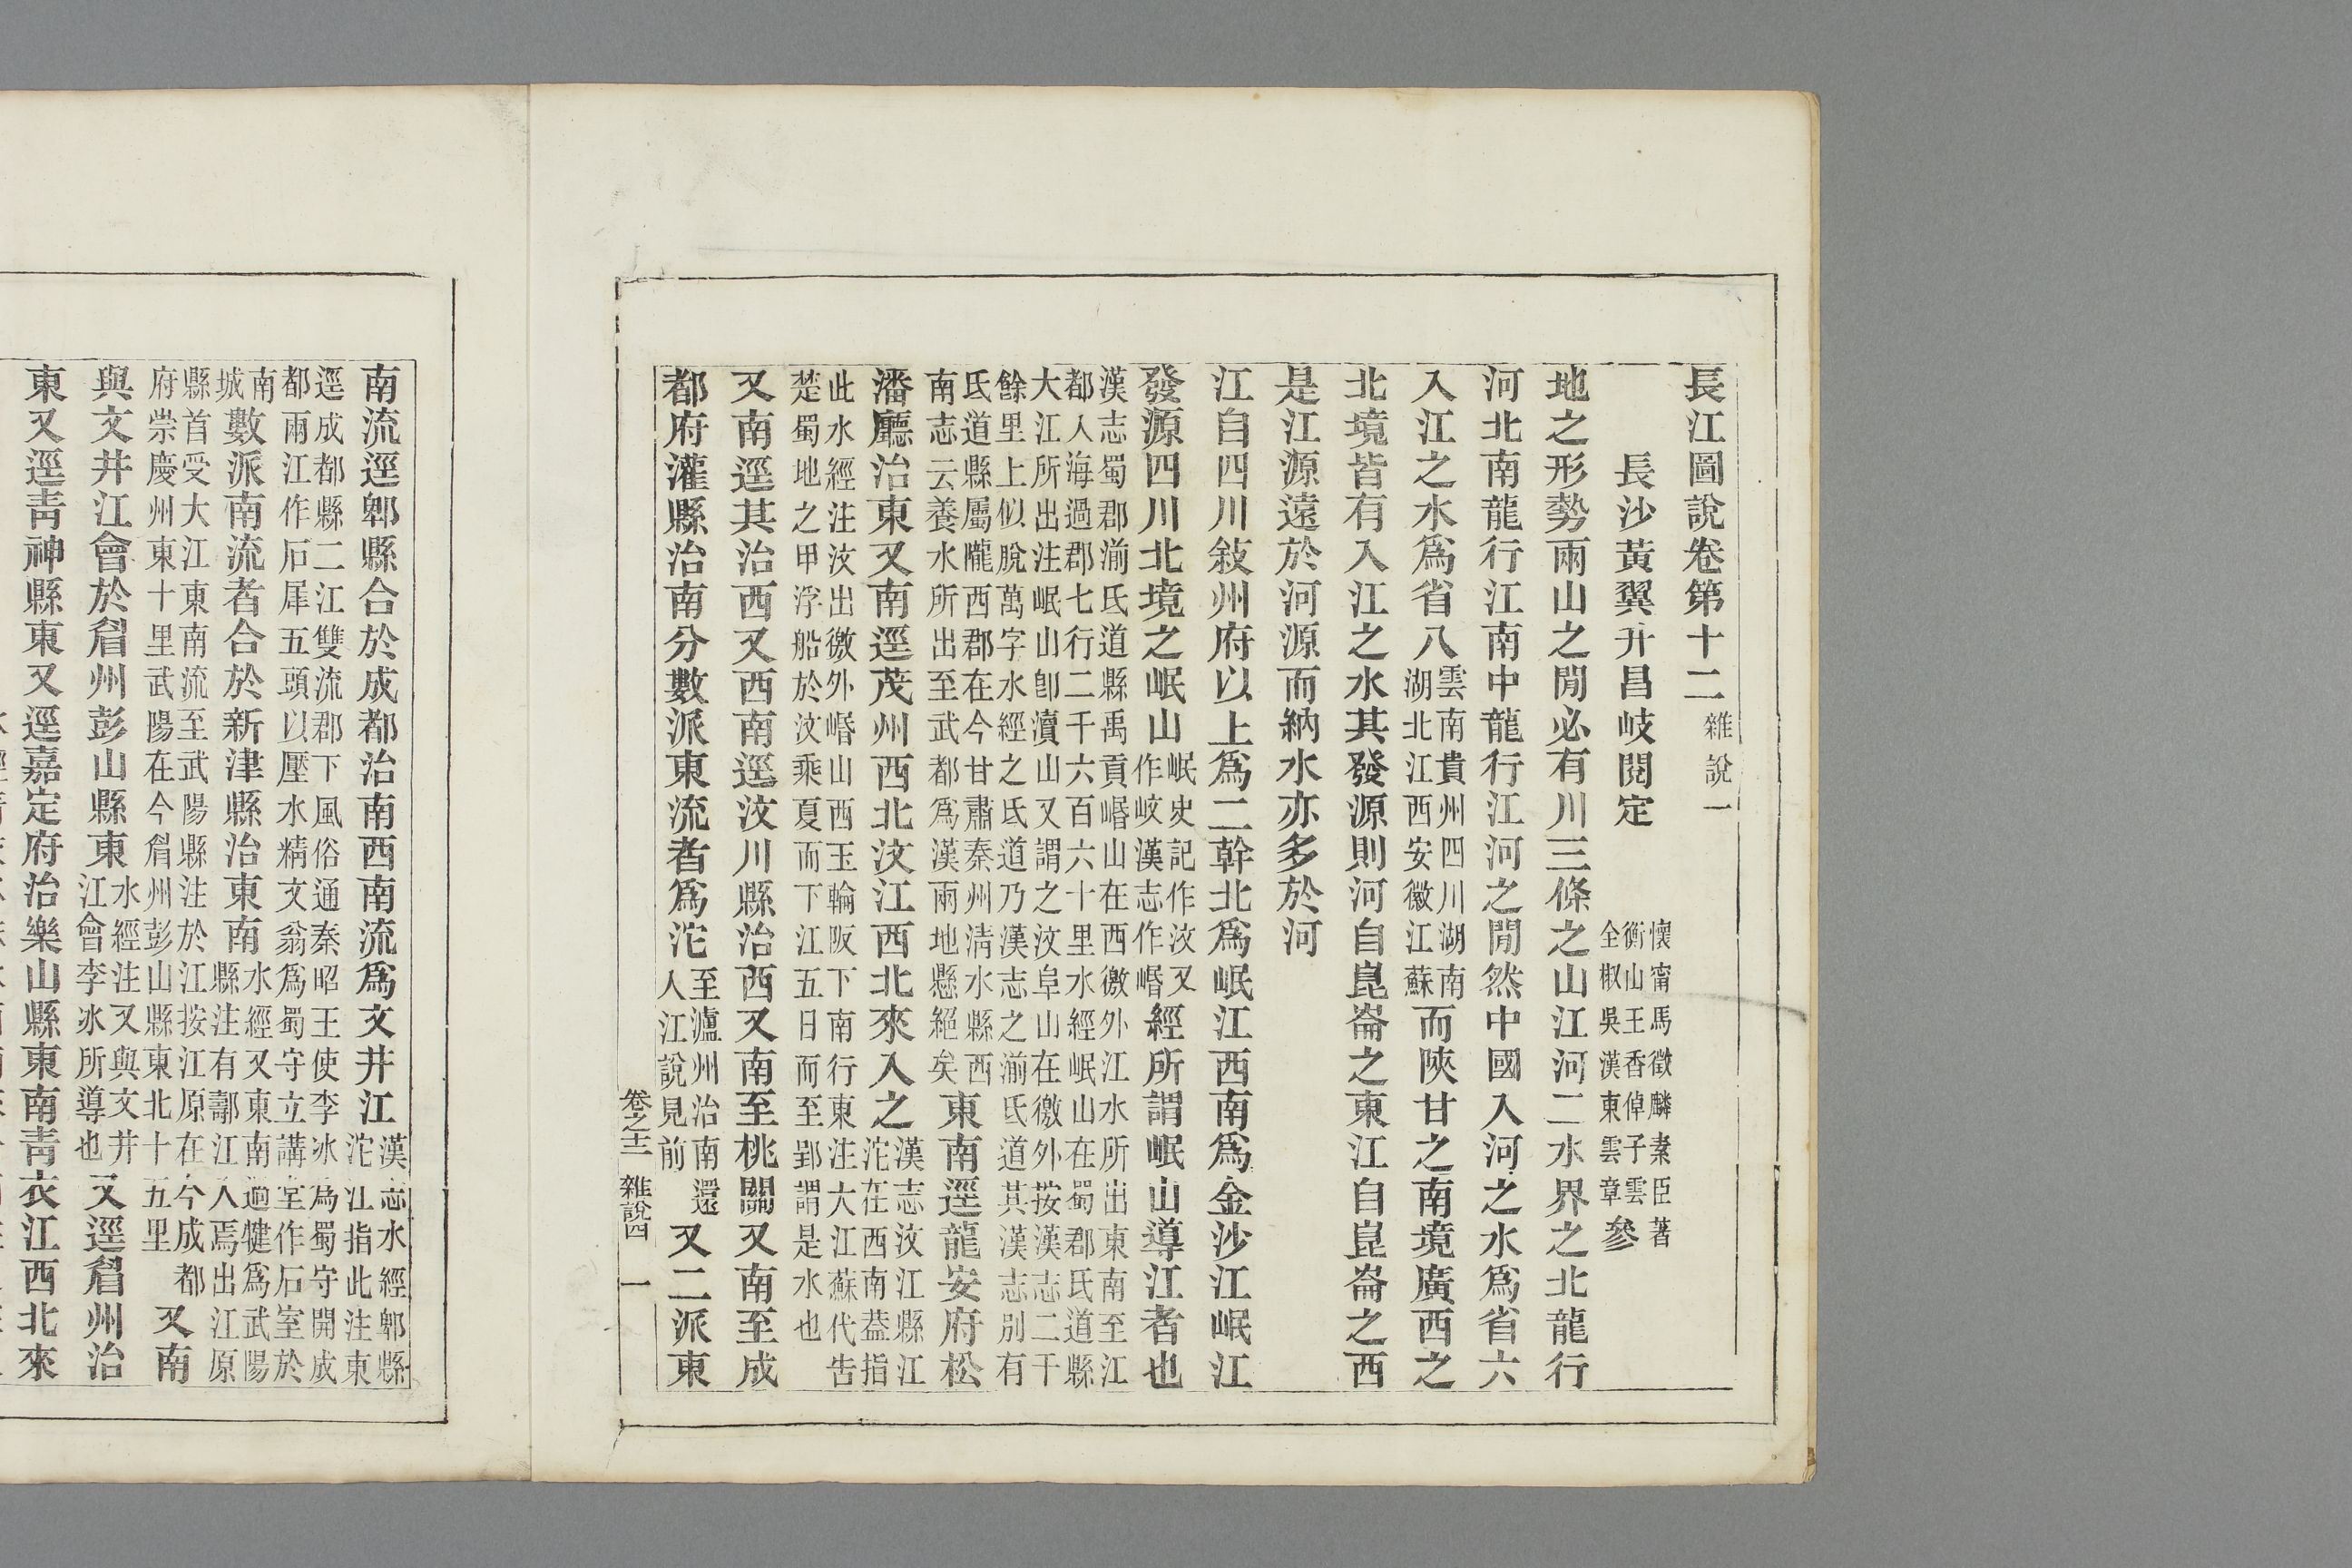 長江圖說卷第十二 雜說一
長沙黃翼升昌岐閱定
懷甯馬徵麟素臣著
衡山王香倬子雲
全椒吳漢東雲章參
地之形勢兩山之閒必有川三條之山江河二水界之北龍行
河北南龍行江南中龍行江河之閒然中國入河之水爲省六
入江之水爲省八雲南貴州四川湖南湖北江西安徽江蘇而陝甘之南境廣西之
北境皆有入江之水其發源則河自崑崙之東江自崑崙之西
是江源遠於河源而納水亦多於河
江自四川敍州府以上爲二幹北爲岷江西南爲金沙江岷江
發源四川北境之岷山岷史記作汶又作岐漢志作㟭經所謂岷山導江者也
漢志蜀郡湔氐道縣禹貢㟭山在西徼外江水所出東南至江
都入海過郡七行二千六百六十里水經岷山在蜀郡氐道縣
大江所出注岷山卽瀆山又謂之汶阜山在徼外按漢志二千
餘里上似脫萬字水經之氐道乃漢志之湔氐道其漢志別有
氐道縣屬隴西郡在今甘肅秦州淸水縣西
南志云養水所出至武都爲漢兩地懸絕矣東南逕龍安府松
潘廳治東又南逕茂州西北汶江西北來入之漢志汶江縣江沱在西南葢指
此水經注汶出徼外㟭山西玉輪阪下南行東注大江蘇代告
楚蜀地之甲浮船於汶乘夏而下江五日而至郢謂是水也
又南逕其治西又西南逕汶川縣治西又南至桃關又南至成
都府灌縣治南分數派東流者爲沱至瀘州治南還入江說見前又二派東
卷之十二 雜說四 一
南流逕郫縣合於成都治南西南流爲文井江漢志水經郫縣沱江指此注東
逕成都縣二江雙流郡下風俗通秦昭王使李冰爲蜀守開成
都兩江作石犀五頭以壓水精文翁爲蜀守立講堂作石室於
南城數派南流者合於新津縣治東南水經又東南過犍爲武陽縣注有鄩江入焉出江原
縣首受大江東南流至武陽縣注於江按江原在今成都
府崇慶州東十里武陽在今眉州彭山縣東北十五里又南
與文井江會於眉州彭山縣東水經注又與文井江會李冰所導也又逕眉州治
東又逕靑神縣東又逕嘉定府治樂山縣東南靑衣江西北來